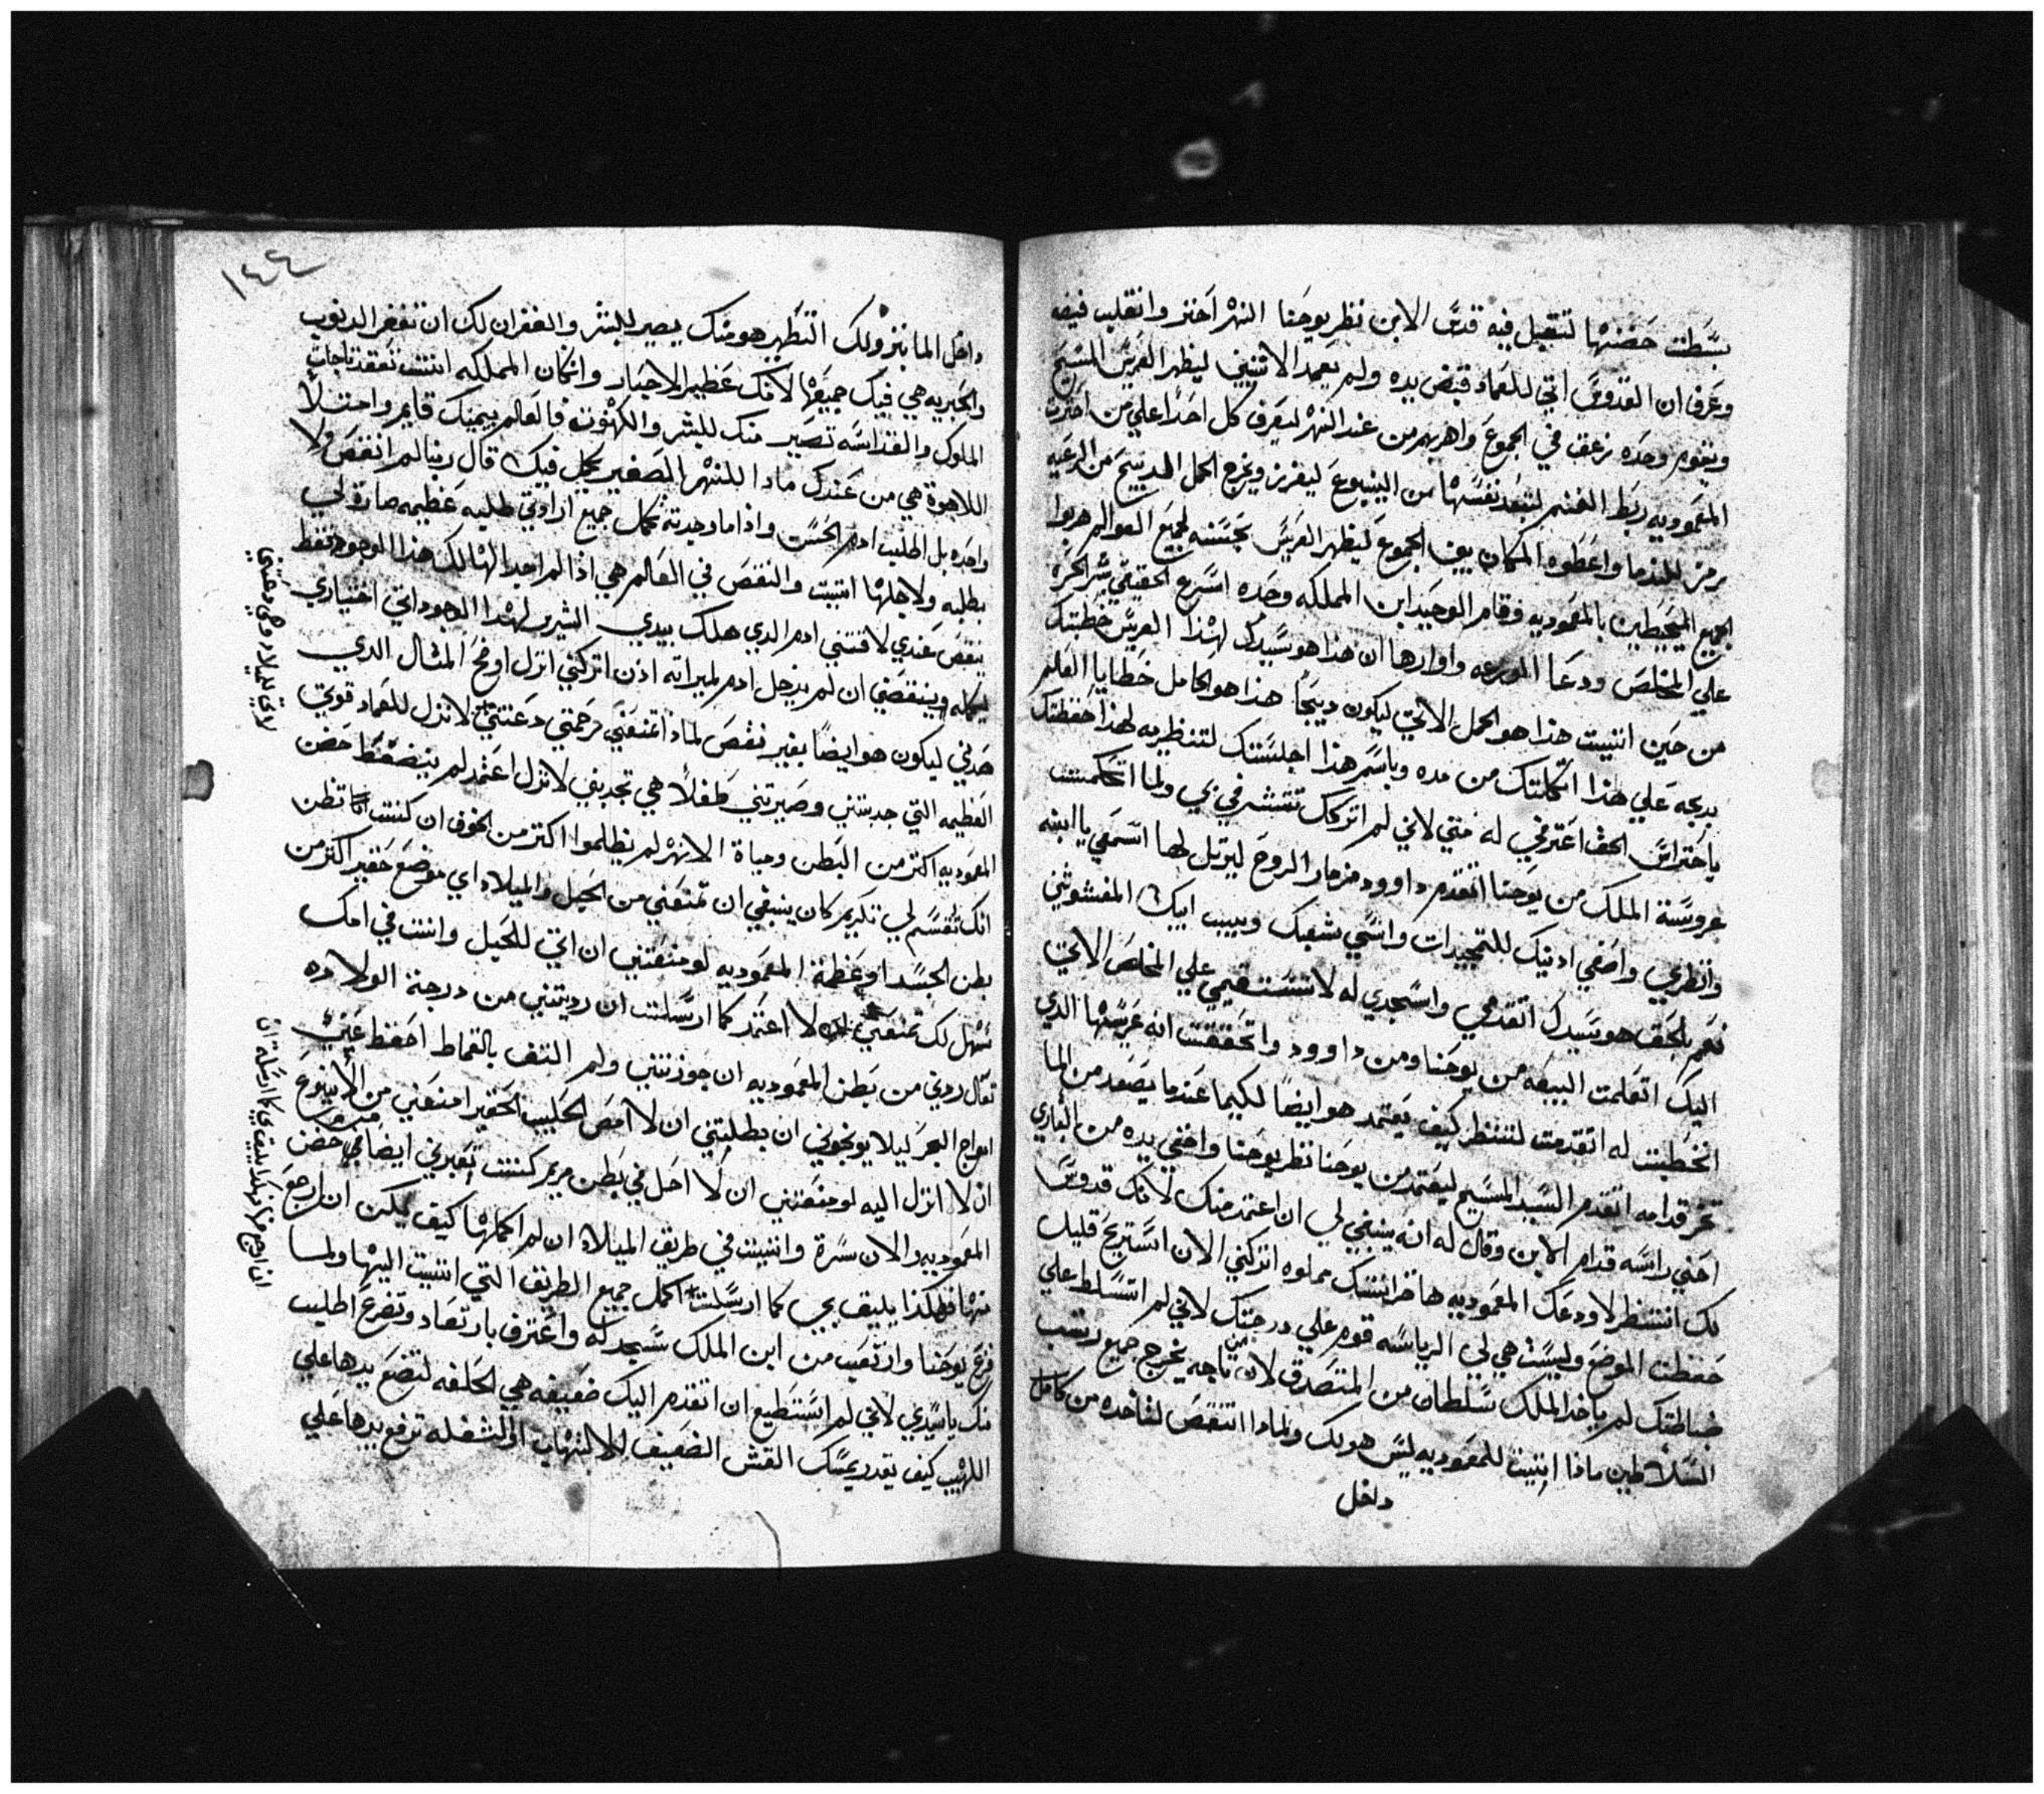 بسَّطت حَضنها لتقبل فيه قدسَّ الابن نظر يوحنا النهر اَختز وانقلب فيه
وعَرف ان القدوسَّ اتي للعماد قبَض يده ولم يعمد الاتنين ليظهر العَريسَّ المسَّيح
ويقوم وحَده زعق في الجموعَ واهربهم من عند النهر ليَعرف كل احَداً علي من اَحترت
المعموديه ربَط الغنم لتبعَد نفسَّها من الينبوعَ ليفرز ويخرج الحمل الدبيح من الرعَيه
رمز للندما واعَطوه المكان بين الجموعَ ليظهر العَريسَّ بحَسَّنه لجميعَ العوالم هربوا
الجميع المحيَطين بالمعَموديه وقام الوحيد ابن المملكه وحَده اسَّرع الحقيقي
علي المخلصَ ودعَا البيعه واوارها ان هذا هو سَّيدك لهذا العريسَّ خَطبتك
من حَين اتيت هذا هو الحمل الاتي ليكون دبيحَاً هذا هو الحَامل خَطايا العَالم
بدبحه عَلي هذا اتكلتك من مده وباسَّم هذا اجلسَّتك لتنظريه لهذا حَفظتك
باحتراسَّ الحق اعَترفي له حَتي لاني لم اتركك في بحي ولما اتحَكمت
عروسَّة الملك من يوحَنا اتقدم داوود مزمار الروحَ ليرتل لها اسَّمعي يا ابنه
وانظري واصَغي ادنيك للتمجيدات وانسَّي شعبك وبيت ابيك المغشوشين
نعَم بالحَق هو سَّيدك اتقدمي واسَّجدي له لا علي المخلصَ الاتي
اليك اتعَلمت البيعَه من يوحَنا ومن داوود واتحَققت انه عَريسَّها الدي
انخَطبت له اتقدمت لتنظر كيف يَعَتمد هو ايضاً لكيما عَندما يصَعَد من الما
تخر قدامه اتقدم السَّيد المسَّيح ليعَتمد من يوحَنا نظر يوحَنا واخَفي يده من الباري
احَني راسَّه قدام الابن وقال له انه ينبغي لي ان اعتمد منك لانك قدوسَّاً
لك انتظر لاودعَك المعَموديه ها خَزانتك مملوه اتركني الان اسَّتريحَ قليل
حَفظت الموضعَ وليسَّت هي لي الرياسَّه قوم علي درجتك لاني لم اتسَّلط علي
ضباطتك لم ياخَد الملك سَّلطان من المتصَدق لان من تاجه يخرج جميع رتب
السَّلاطين ماذا اتيت للمعَموديه ليسَّ هو لك ولمادا انتقصَ لتاخده من كامل
داخل
١٤٤
داخَل الما بنزولك التطَهير هو منك يصير للبشر والغفران لك ان تغفر الدنوب
والحَبريه هي فيك جميعَها لانك عَظيم الاحبار وانكان المملكه انت تعَقد تاجات
الملوك والقداسَّه تصَير منك للبشر والكهنوت فالعَالم بيمينك قايم واحتلا
اللاهوة هي من عَندك مادا للنهر الصَغير يكمل فيك قال ربنا لم انقصَ ولا
واحَده بل اطلب ادم الحَسَّن واذا ما وجدته تكمل جميع ارادتي طلبه عَظيمه صارة لي
بطلبه ولاجلها اتيت والنقصَ في العَالم هي اذا لم اجد الهالك هذا الموجود فقط
ينقصَ عَندي لاقتني ادم الدي هلك بيدي لهذا الدجود اتي اختياري
ليكمله وينتقصَني ان لم يدخَل ادم لميراته اذن اتركني انزل اوضحَ المثال الدي
حَدني ليكون هو ايضاً بغير نقصَ لماذا تمنعَني رحَمتي دعَتني لانزل للعَماد قوتي
العَظيمه التي جدبتني وصَيرتني طَفلاً هي تجدبني لانزل اعَتمد لم ينضغَط حَضن
المعموديه اكتر من البَطن وحياة الانهر لم يظلموا اكتر من الجوف ان كنت تظن
انك تقسَّم لي تكريم كان ينبغي ان تمنعَني من الحبل والميلاد اي موضعَ حَقير اكتر من
بطن الجسَّد او عَظمة المعموديه لو منعَتني ان اتي للحبل وانت في امك
سَّهل لك تمنعَني لا اعَتمد كما ارسَّلت ان رديتني من درجة الولاده
تعَال ردني من بَطن المعَموديه ان جوزتني ولم التف بالقماط احَفظ عَني
امواج البحَر ليلا يوبخوني ان بطلبتني ان لا امصَ الحَليب الحَقير امنعَني من الينبوعَ
ان لا انزل اليه لو منعَتني ان لا احَل في بَطن مريم كنت تعَبرني ايضاً من حَضن
المعَموديه والان سَّرة واتيت في طريق الميلاد ان لم اكملها كيف يمكن ان ارجعَ
منها فهكذا يليق بي كما ارسَّلت اكمل جميع الطريق التي اتيت اليها ولما
فزعَ يوحَنا وارتعَب من ابن الملك سَّجد له واعَترف بارتعَاد وتضرع اطلب
منك ياسَّيدي لاني لم اسَّتطيع ان اتقدم اليك ضعَيفه هي الخَلقه لتضعَ يدها علي
اللهيب كيف تقدر يمسَّك القش الضعَيف للالتهاب او الشعَله ترفع يدها علي